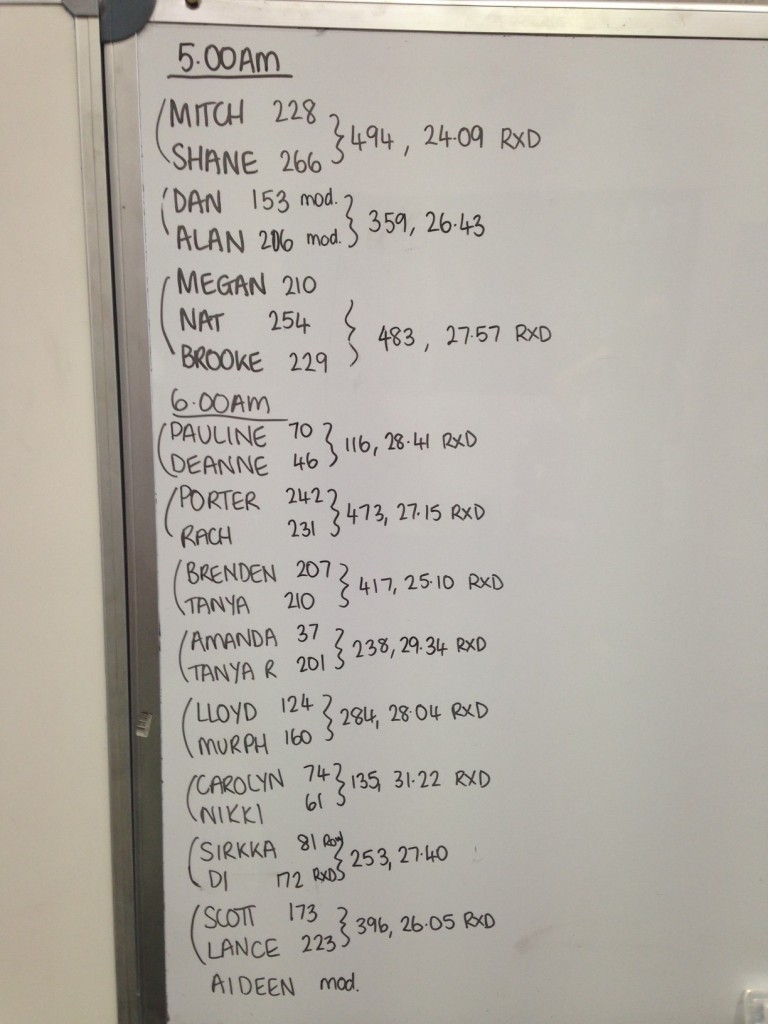 5.00Am
MITCH 228
SHANE 266 } 494, 24.09 RXD
DAN 153 mod.
ALAN 206 mod. } 359, 26.43
MEGAN 210
NAT 254
BROOKE 229 } 483, 27.57 RXD
6.00AM
PAULINE 70
DEANNE 46 } 116, 28.41 RXD
PORTER 242
RACH 231 } 473, 27.15 RXD
BRENDEN 207
TANYA 210 } 417, 25.10 RXD
AMANDA 37
TANYA R 201 } 238, 29.34 RXD
LLOYD 124
MURPH 160 } 284, 28.04 RXD
CAROLYN 74
NIKKI 61 } 135, 31.22 RXD
SIRKKA 81 Row
DI 172 RXD } 253, 27.40
SCOTT 173
LANCE 223 } 396, 26.05 RXD
AIDEEN mod.